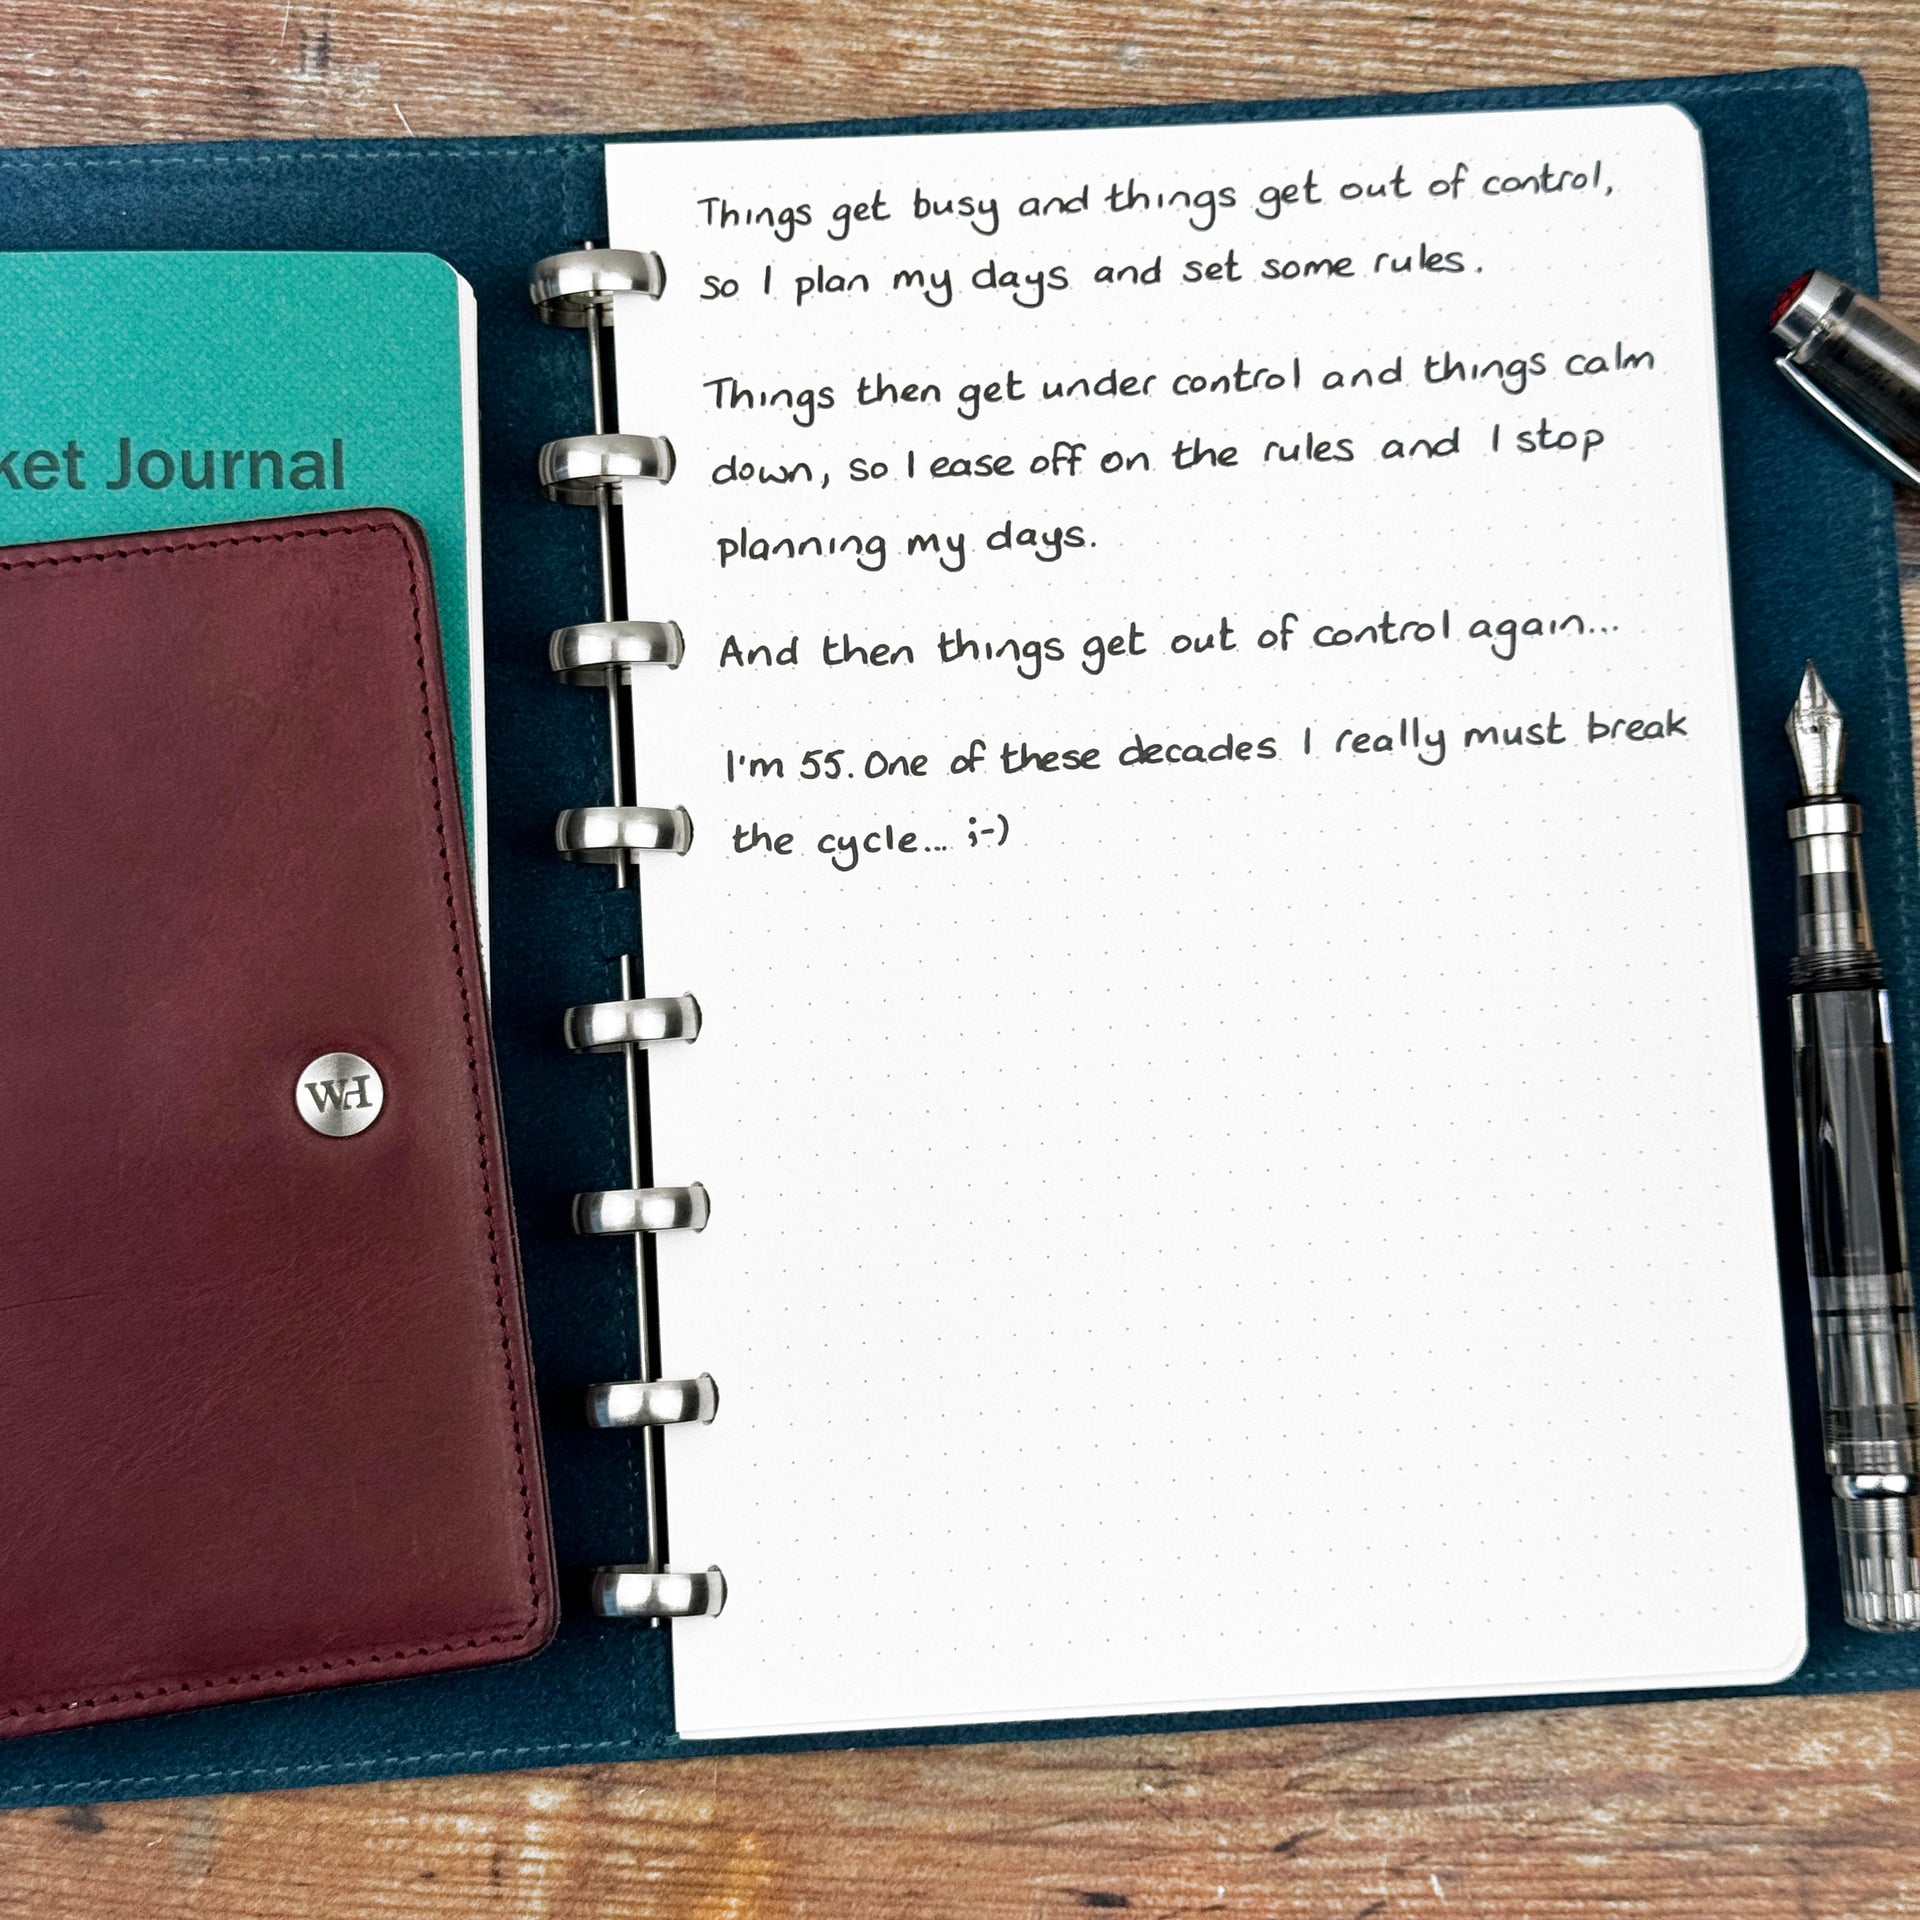 Things get busy and things get out of control,
so I plan my days and set some rules.
Things then get under control and things calm
down, so I ease off on the rules and I stop
planning my days.
And then things get out of control again...
I'm 55. One of these decades I really must break
the cycle... ;-)
ket Journal
WH